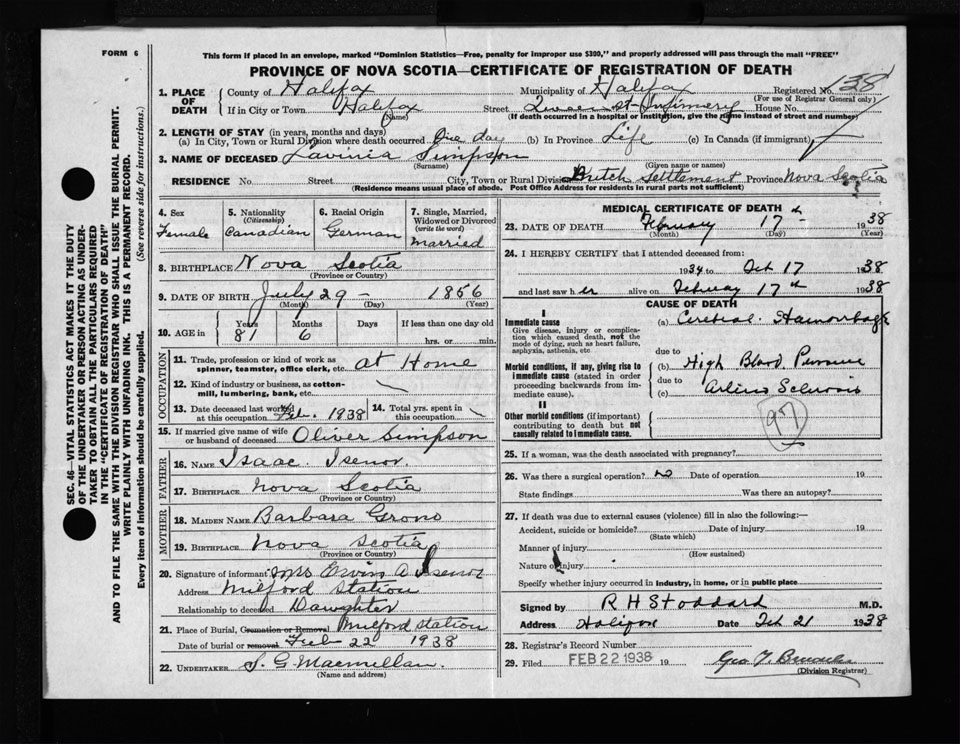 FORM 6
This form if placed in an envelope, marked "Dominion Statistics—Free, penalty for improper use $300," and properly addressed will pass through the mail "FREE"
PROVINCE OF NOVA SCOTIA—CERTIFICATE OF REGISTRATION OF DEATH
1. PLACE OF DEATH County of Halifax Municipality of Halifax Registered No. 138
(For use of Registrar General only)
If in City or Town Halifax Street Queen St-Infirmery House No.
(Name) (If death occurred in a hospital or institution, give the name instead of street and number)
2. LENGTH OF STAY (in years, months and days)
(a) In City, Town or Rural Division where death occurred One day (b) In Province Life (c) In Canada (if immigrant)
3. NAME OF DECEASED Lavinia Simpson
(Surname) (Given name or names)
RESIDENCE No. Street City, Town or Rural Division Dutch Settlement Province Nova Scotia
(Residence means usual place of abode. Post Office Address for residents in rural parts not sufficient)
4. Sex Female
5. Nationality (Citizenship) Canadian
6. Racial Origin German
7. Single, Married, Widowed or Divorced (write the word) Married
8. BIRTHPLACE Nova Scotia
(Province or Country)
9. DATE OF BIRTH July 29 - 1856
(Month) (Day) (Year)
10. AGE in Years 81 Months 6 Days If less than one day old hrs. or min.
OCCUPATION
11. Trade, profession or kind of work as spinner, teamster, office clerk, etc. at Home
12. Kind of industry or business, as cotton-mill, lumbering, bank, etc.
13. Date deceased last worked at this occupation Feb. 1938
14. Total yrs. spent in this occupation
15. If married give name of wife or husband of deceased Oliver Simpson
FATHER
16. NAME Isaac Isenor.
17. BIRTHPLACE Nova Scotia
(Province or Country)
MOTHER
18. MAIDEN NAME Barbara Grono
19. BIRTHPLACE Nova Scotia
(Province or Country)
20. Signature of informant Mrs Orvin A Isenor
Address Milford Station
Relationship to deceased Daughter
21. Place of Burial, Cremation or Removal Milford Station
Date of burial or removal Feb 22 1938
22. UNDERTAKER S. G. Macmillan.
(Name and address)
MEDICAL CERTIFICATE OF DEATH
23. DATE OF DEATH February 17th - 1938
(Month) (Day) (Year)
24. I HEREBY CERTIFY that I attended deceased from:
1934 to Feb 17 1938
and last saw her alive on February 17th 1938
CAUSE OF DEATH
I
Immediate cause
Give disease, injury or complication which caused death, not the mode of dying, such as heart failure, asphyxia, asthenia, etc
(a) Cerebral Hamorhage
due to
Morbid conditions, if any, giving rise to immediate cause (stated in order proceeding backwards from immediate cause).
(b) High Blood Pressure
due to
(c) Arterio Sclerosis
II
Other morbid conditions (if important) contributing to death but not causally related to immediate cause.
97
25. If a woman, was the death associated with pregnancy?
26. Was there a surgical operation? no Date of operation 19
State findings Was there an autopsy?
27. If death was due to external causes (violence) fill in also the following:—
Accident, suicide or homicide? Date of injury 19
(State which)
Manner of injury
(How sustained)
Nature of injury
Specify whether injury occurred in industry, in home, or in public place
Signed by R H Stoddard M.D.
Address Halifax Date Feb 21 1938
28. Registrar's Record Number
29. Filed FEB 22 1938 19
(Division Registrar)
SEC. 46—VITAL STATISTICS ACT MAKES IT THE DUTY
OF THE UNDERTAKER OR PERSON ACTING AS UNDER-
TAKER TO OBTAIN ALL THE PARTICULARS REQUIRED
IN THE "CERTIFICATE OF REGISTRATION OF DEATH"
AND TO FILE THE SAME WITH THE DIVISION REGISTRAR WHO SHALL ISSUE THE BURIAL PERMIT.
WRITE PLAINLY WITH UNFADING INK. THIS IS A PERMANENT RECORD.
Every item of information should be carefully supplied. (See reverse side for instructions.)